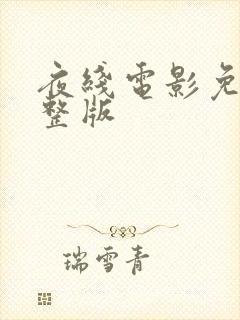 夜綫電影免
整版
瑞雪青